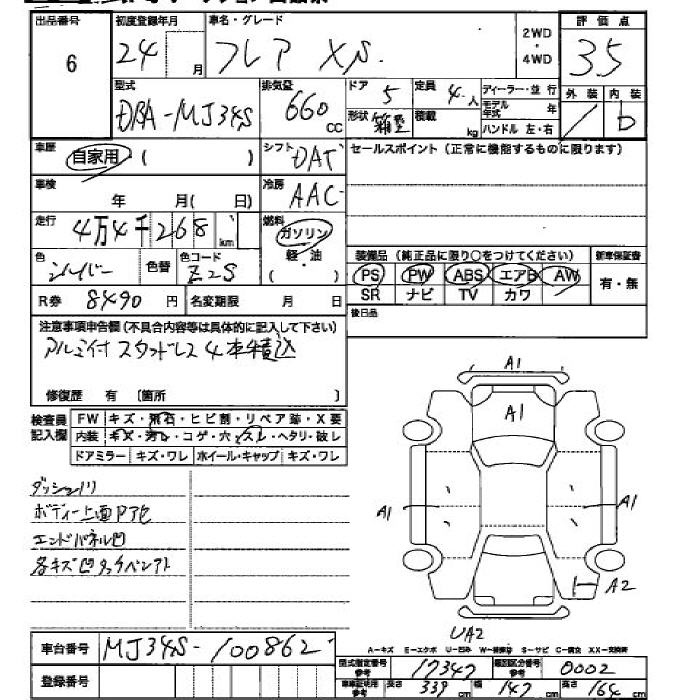 出品番号 初度登録年月 車名・グレード 2WD・4WD 評価点
6 24 月 フレア XS 3.5
型式 排気量 ドア 定員 ディーラー・並行 外装 内装
DBA-MJ34S 660 CC 5 4 人 モデル年式 年
形状 箱型 積載 kg ハンドル 左・右 / b
車歴 自家用 ( ) シフト DAT セールスポイント(正常に機能するものに限ります)
車検 年 月( 日) 冷房 AAC
走行 4万4千268 km 燃料 ガソリン
軽・油
( )
色 シルバー 色替 色コード Z2S 装備品(純正品に限り○をつけてください) 新車保証書
PS PW ABS エアB AW 有・無
SR ナビ TV カワ
R券 8490 円 名変期限 月 日 後日品
注意事項申告欄(不具合内容等は具体的に記入して下さい)
アルミ付スタッドレス4本積込
修復歴 有 〔箇所 〕
検査員記入欄 FW キズ・飛石・ヒビ割・リペア跡・X要
内装 キズ・汚レ・コゲ・穴・スレ・ヘタリ・破レ
ドアミラー キズ・ワレ ホイール・キャップ キズ・ワレ
A1
A1
ダッシュノリ
ボディー上面Pアセ
エンドパネル凹
各キズ凹タッチペンアト
A1 A1
A2
UA2
A−キズ E−エクボ U−凹み W−補修跡 S−サビ C−腐食 XX−交換済
車台番号 MJ34S-100862
型式指定番号参考 17347 類別区分番号参考 0002
登録番号 車庫証明用参考 長さ 339 cm 幅 147 cm 高さ 164 cm